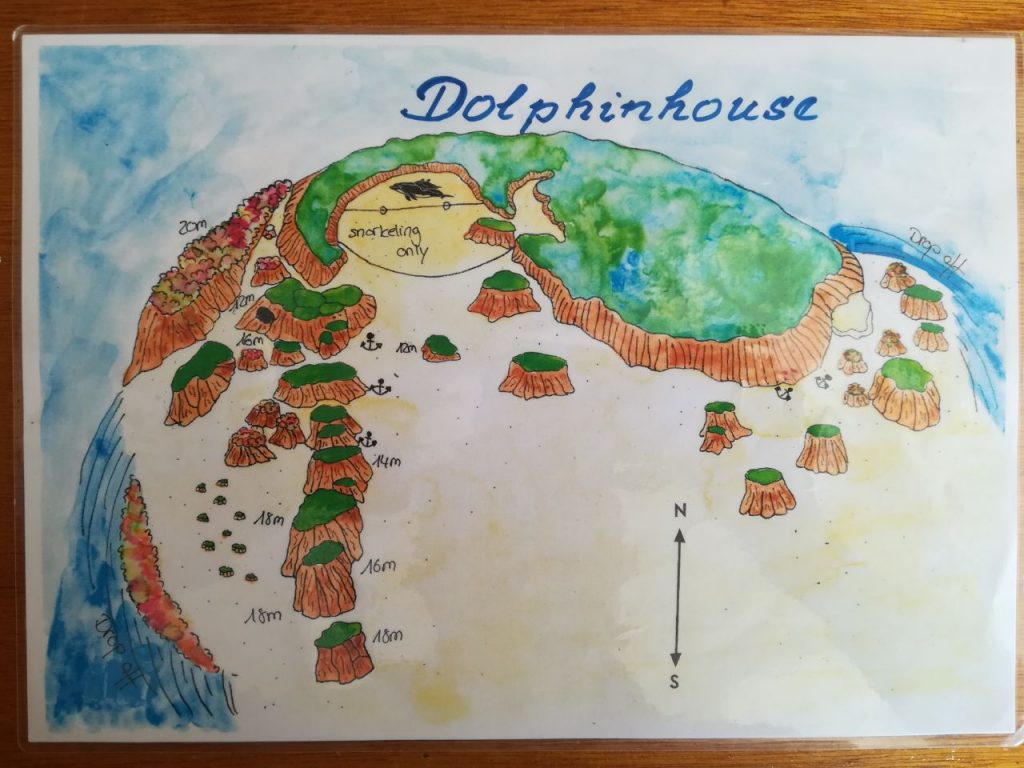 Dolphinhouse
20m
snorkeling
only
Drop off
12m
16m
12m
14m
18m
N
16m
18m
18m
S
Drop off